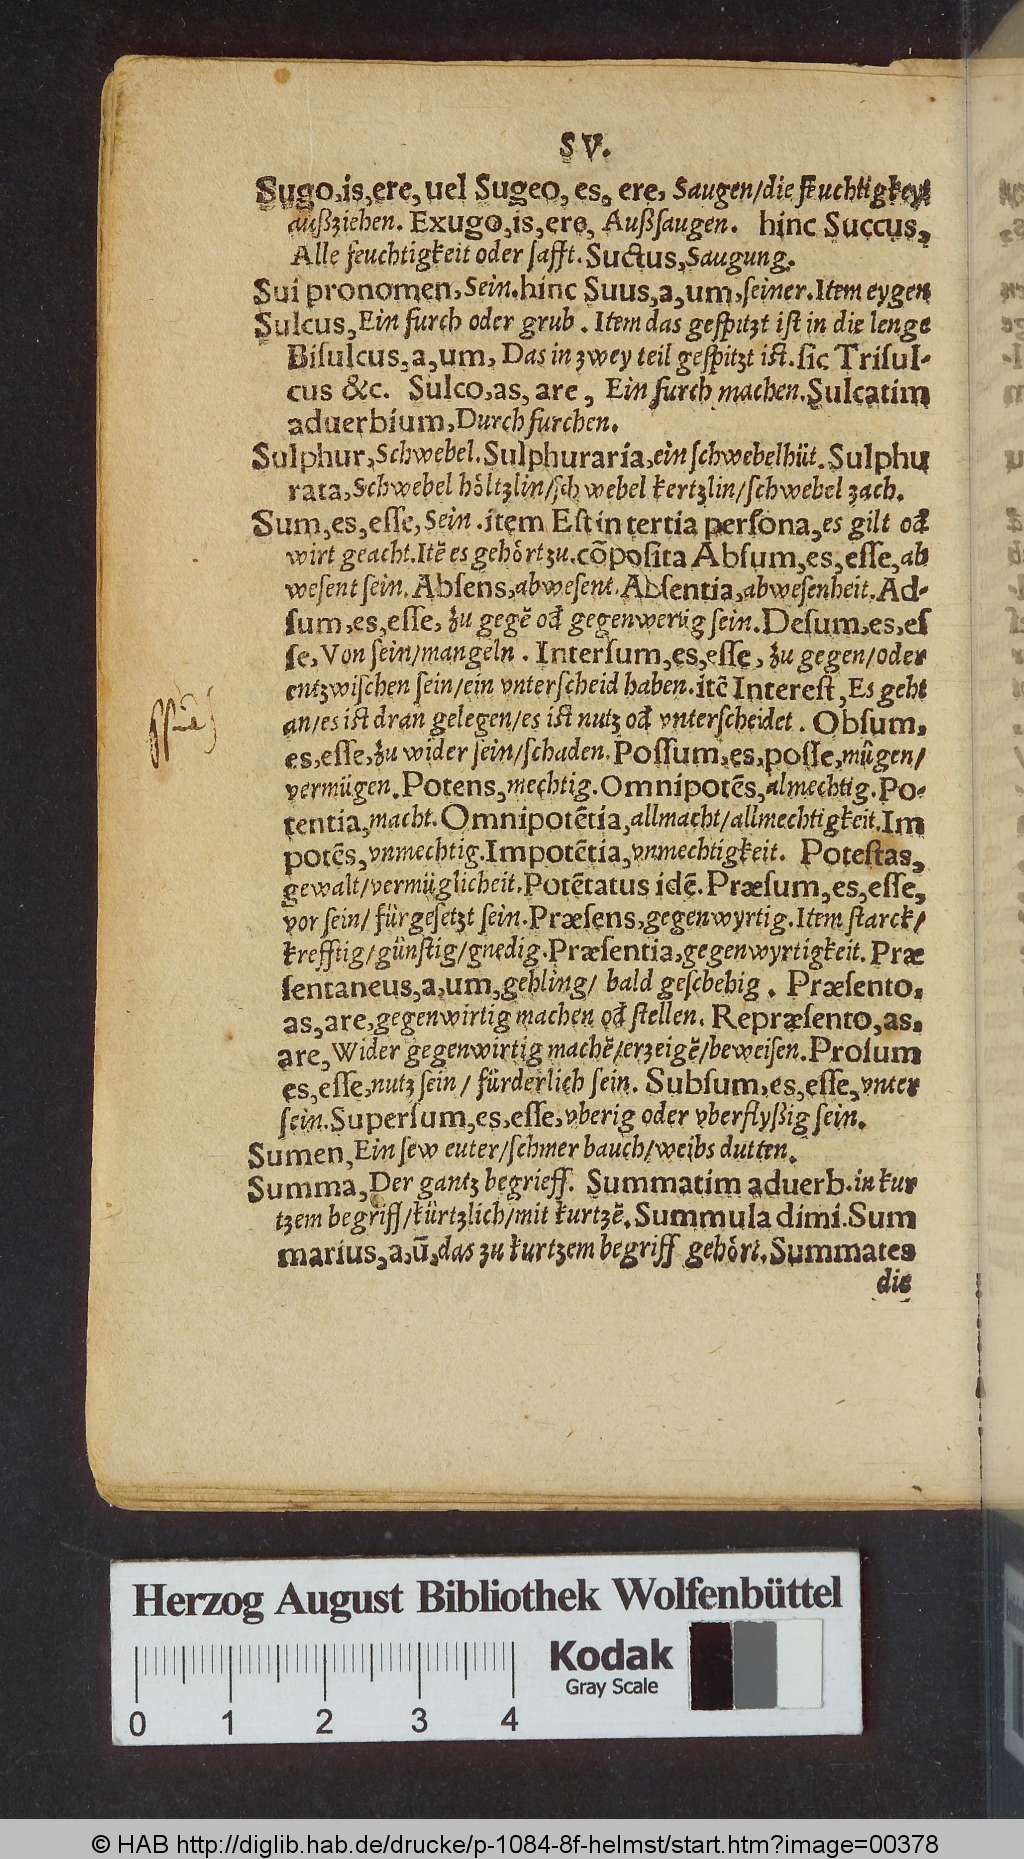 SV.
Sugo,is,ere, uel Sugeo, es, ere, Saugen/die feuchtigkeyt
außziehen. Exugo,is,ere, Außsaugen. hinc Succus,
Alle feuchtigkeit oder safft. Suctus, Saugung.
Sui pronomen, Sein. hinc Suus,a,um, seiner. Item eygen
Sulcus, Ein furch oder grub. Item das gespitzt ist in die lenge
Biſulcus,a,um, Das in zwey teil gespitzt ist. sic Triſul-
cus &c. Sulco,as, are, Ein furch machen. Sulcatim
aduerbium, Durch furchen.
Sulphur, Schwebel. Sulphuraria, ein schwebelhüt. Sulphu
rata, Schwebel höltzlin/schwebel kertzlin/schwebel zach.
Sum,es,eſſe, Sein. item Eſt in tertia perſona, es gilt od̃
wirt geacht. Itẽ es gehört zu. cõpoſita Abſum,es,eſſe, ab
wesent sein. Abſens, abwesent. Abſentia, abwesenheit. Ad-
ſum,es,eſſe, zu gegẽ od̃ gegenwertig sein. Deſum,es,eſ
ſe, Von sein/mangeln. Interſum,es,eſſe, zu gegen/oder
entzwischen sein/ein vnterscheid haben. itẽ Intereſt, Es geht
an/es ist dran gelegen/es ist nutz od̃ vnterscheidet. Obſum,
es,eſſe, zu wider sein/schaden. Poſſum,es,poſſe, mügen/
vermügen. Potens, mechtig. Omnipotẽs, almechtig. Po-
tentia, macht. Omnipotẽtia, allmacht/allmechtigkeit. Im
potẽs, vnmechtig. Impotẽtia, vnmechtigkeit. Poteſtas,
gewalt/vermüglicheit. Potẽtatus idẽ. Præſum,es,eſſe,
vor sein/ fürgesetzt sein. Præſens, gegenwyrtig. Item starck/
krefftig/günstig/gnedig. Præſentia, gegenwyrtigkeit. Præ
ſentaneus,a,um, gehling/ bald geschehig. Præſento,
as,are, gegenwirtig machen od̃ stellen. Repræſento,as,
are, Wider gegenwirtig machẽ/erzeigẽ/beweisen. Proſum
es,eſſe, nutz sein/ fürderlich sein. Subſum,es,eſſe, vnter
sein. Superſum,es,eſſe, vberig oder vberflyßig sein.
Sumen, Ein sew euter/schmer bauch/weibs dutten.
Summa, Der gantz begrieff. Summatim aduerb. in kur
tzem begriff/kürtzlich/mit kurtzẽ. Summula dimi. Sum
marius,a,ũ, das zu kurtzem begriff gehört. Summates
die
Herzog August Bibliothek Wolfenbüttel
Kodak
Gray Scale
0 1 2 3 4
© HAB http://diglib.hab.de/drucke/p-1084-8f-helmst/start.htm?image=00378